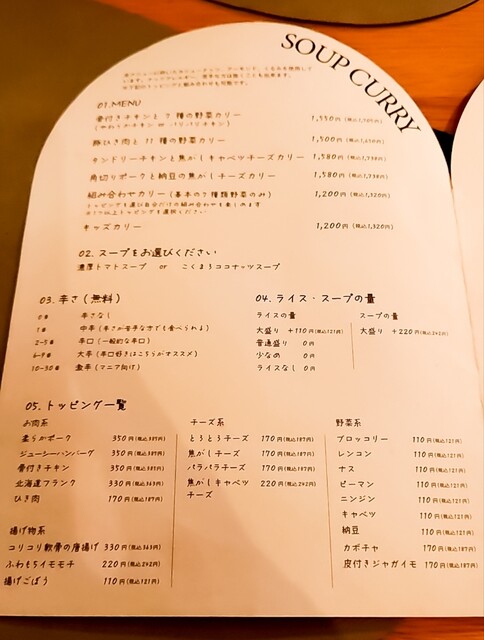 SOUP CURRY
01.MENU
骨付きチキンと7種の野菜カリー 1,550円(税込1,705円)
(やわらかチキン or パリパリチキン)
豚ひき肉と11種の野菜カリー 1,500円(税込1,650円)
タンドリーチキンと焦がしキャベツチーズカリー 1,580円(税込1,738円)
角切りポークと納豆の焦がしチーズカリー 1,580円(税込1,738円)
組み合わせカリー(基本の7種類野菜のみ) 1,200円(税込1,320円)
トッピングを選び自分だけの組み合わせを楽しめます
※1つ以上トッピングを選択ください
キッズカリー 1,200円(税込1,320円)
02. スープをお選びください
濃厚トマトスープ or こくまろココナッツスープ
03. 辛さ(無料)
0番 辛さなし
1番 中辛(辛さが苦手な方でも食べられる)
2~5番 辛口(一般的な辛口)
6~9番 大辛(辛口好きはこちらがオススメ)
10~30番 激辛(マニア向け)
04. ライス・スープの量
ライスの量
大盛り +110円(税込121円)
普通盛り 0円
少なめ 0円
ライスなし 0円
スープの量
大盛り +220円(税込242円)
05. トッピング一覧
お肉系
柔らかポーク 350円(税込385円)
ジューシーハンバーグ 350円(税込385円)
骨付きチキン 350円(税込385円)
北海道フランク 330円(税込363円)
ひき肉 170円(税込187円)
揚げ物系
コリコリ軟骨の唐揚げ 330円(税込363円)
ふわもちイモモチ 220円(税込242円)
揚げごぼう 110円(税込121円)
チーズ系
とろとろチーズ 170円(税込187円)
焦がしチーズ 170円(税込187円)
パラパラチーズ 170円(税込187円)
焦がしキャベツ 220円(税込242円)
チーズ
野菜系
ブロッコリー 110円(税込121円)
レンコン 110円(税込121円)
ナス 110円(税込121円)
ピーマン 110円(税込121円)
ニンジン 110円(税込121円)
キャベツ 110円(税込121円)
納豆 110円(税込121円)
カボチャ 170円(税込187円)
皮付きジャガイモ 170円(税込187円)